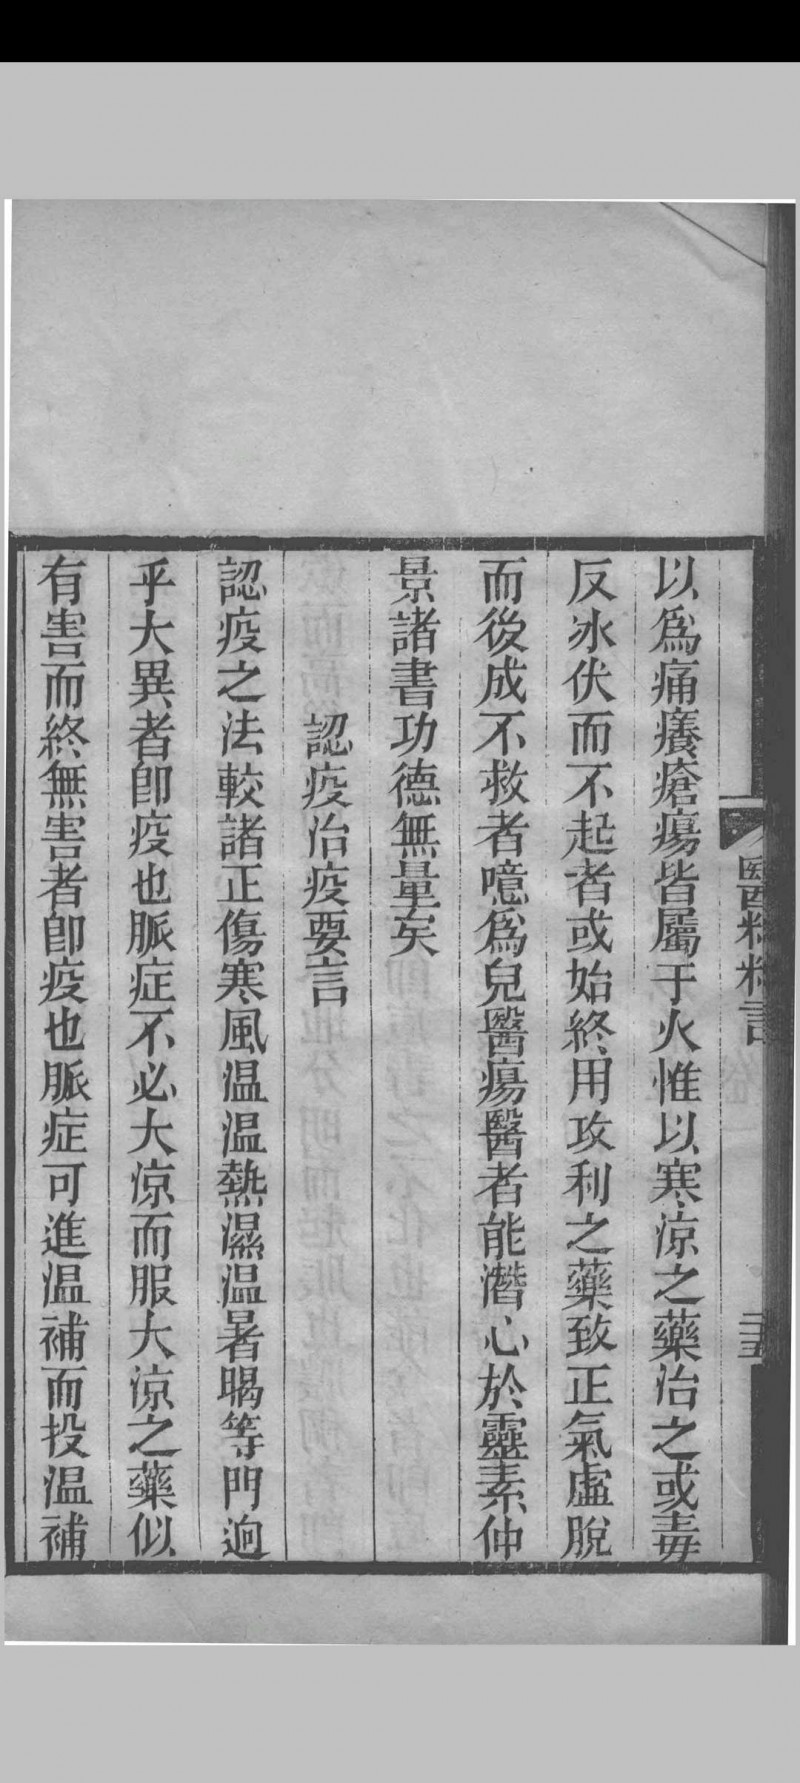 醫粹精言
二五
以爲痛癢瘡瘍皆屬于火惟以寒涼之藥治之或毒
反冰伏而不起者或始終用攻利之藥致正氣虛脫
而後成不救者噫爲兒醫瘍醫者能潛心於靈素仲
景諸書功德無量矣
認疫治疫要言
認疫之法較諸正傷寒風温温熱濕温暑暍等門迥
乎大異者卽疫也脈症不必大涼而服大涼之藥似
有害而終無害者卽疫也脈症可進温補而投温補